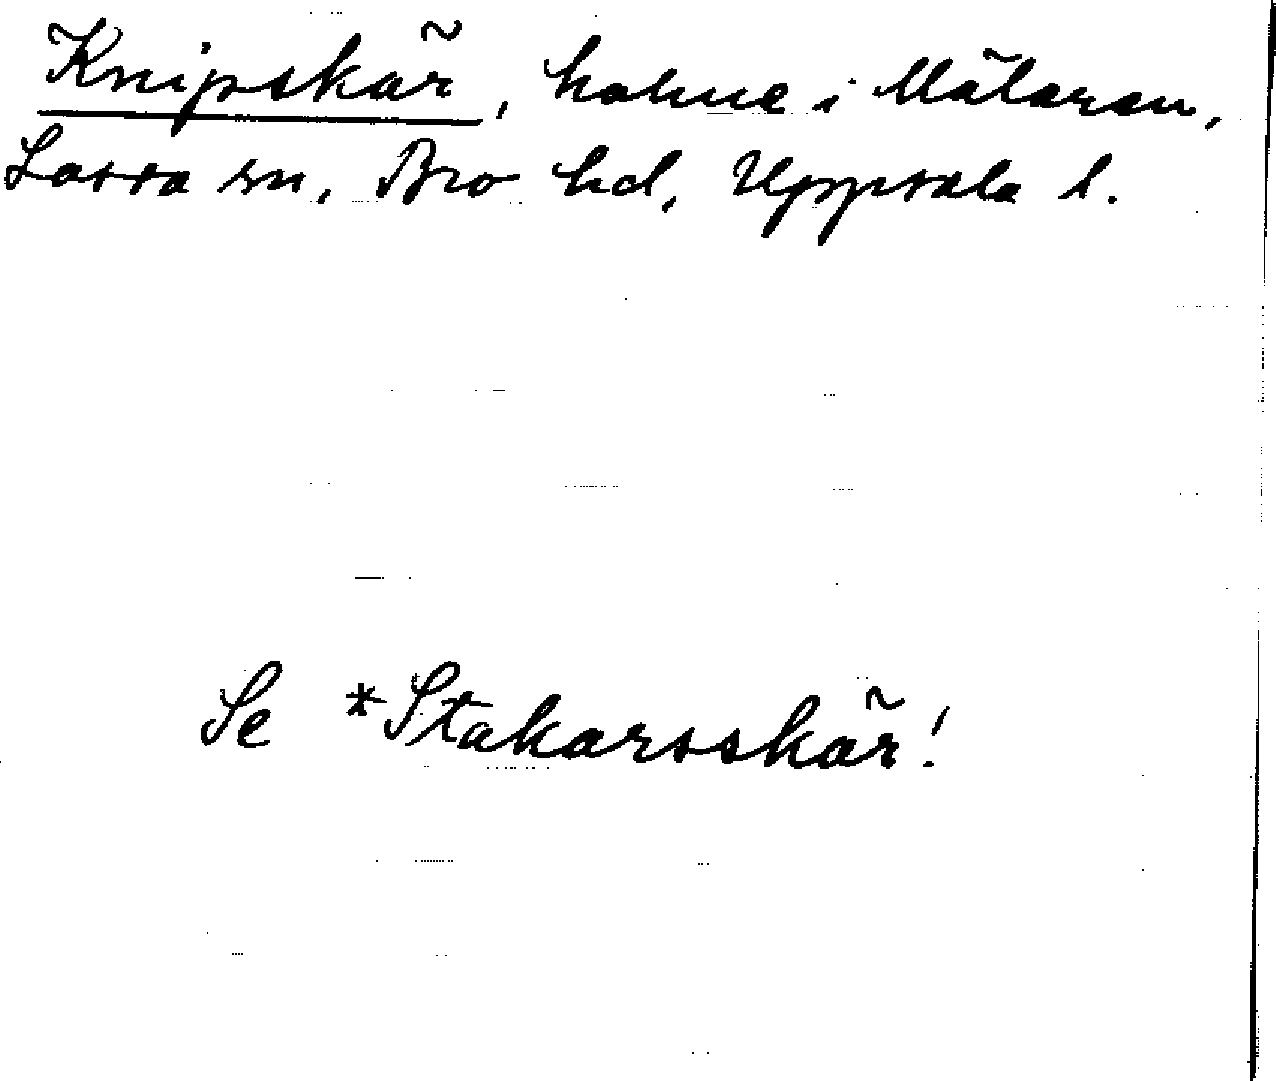 Knipskär, holme i Mälaren,
Lossa sn, Bro hd, Uppsala l.
Se *Stakarsskär!